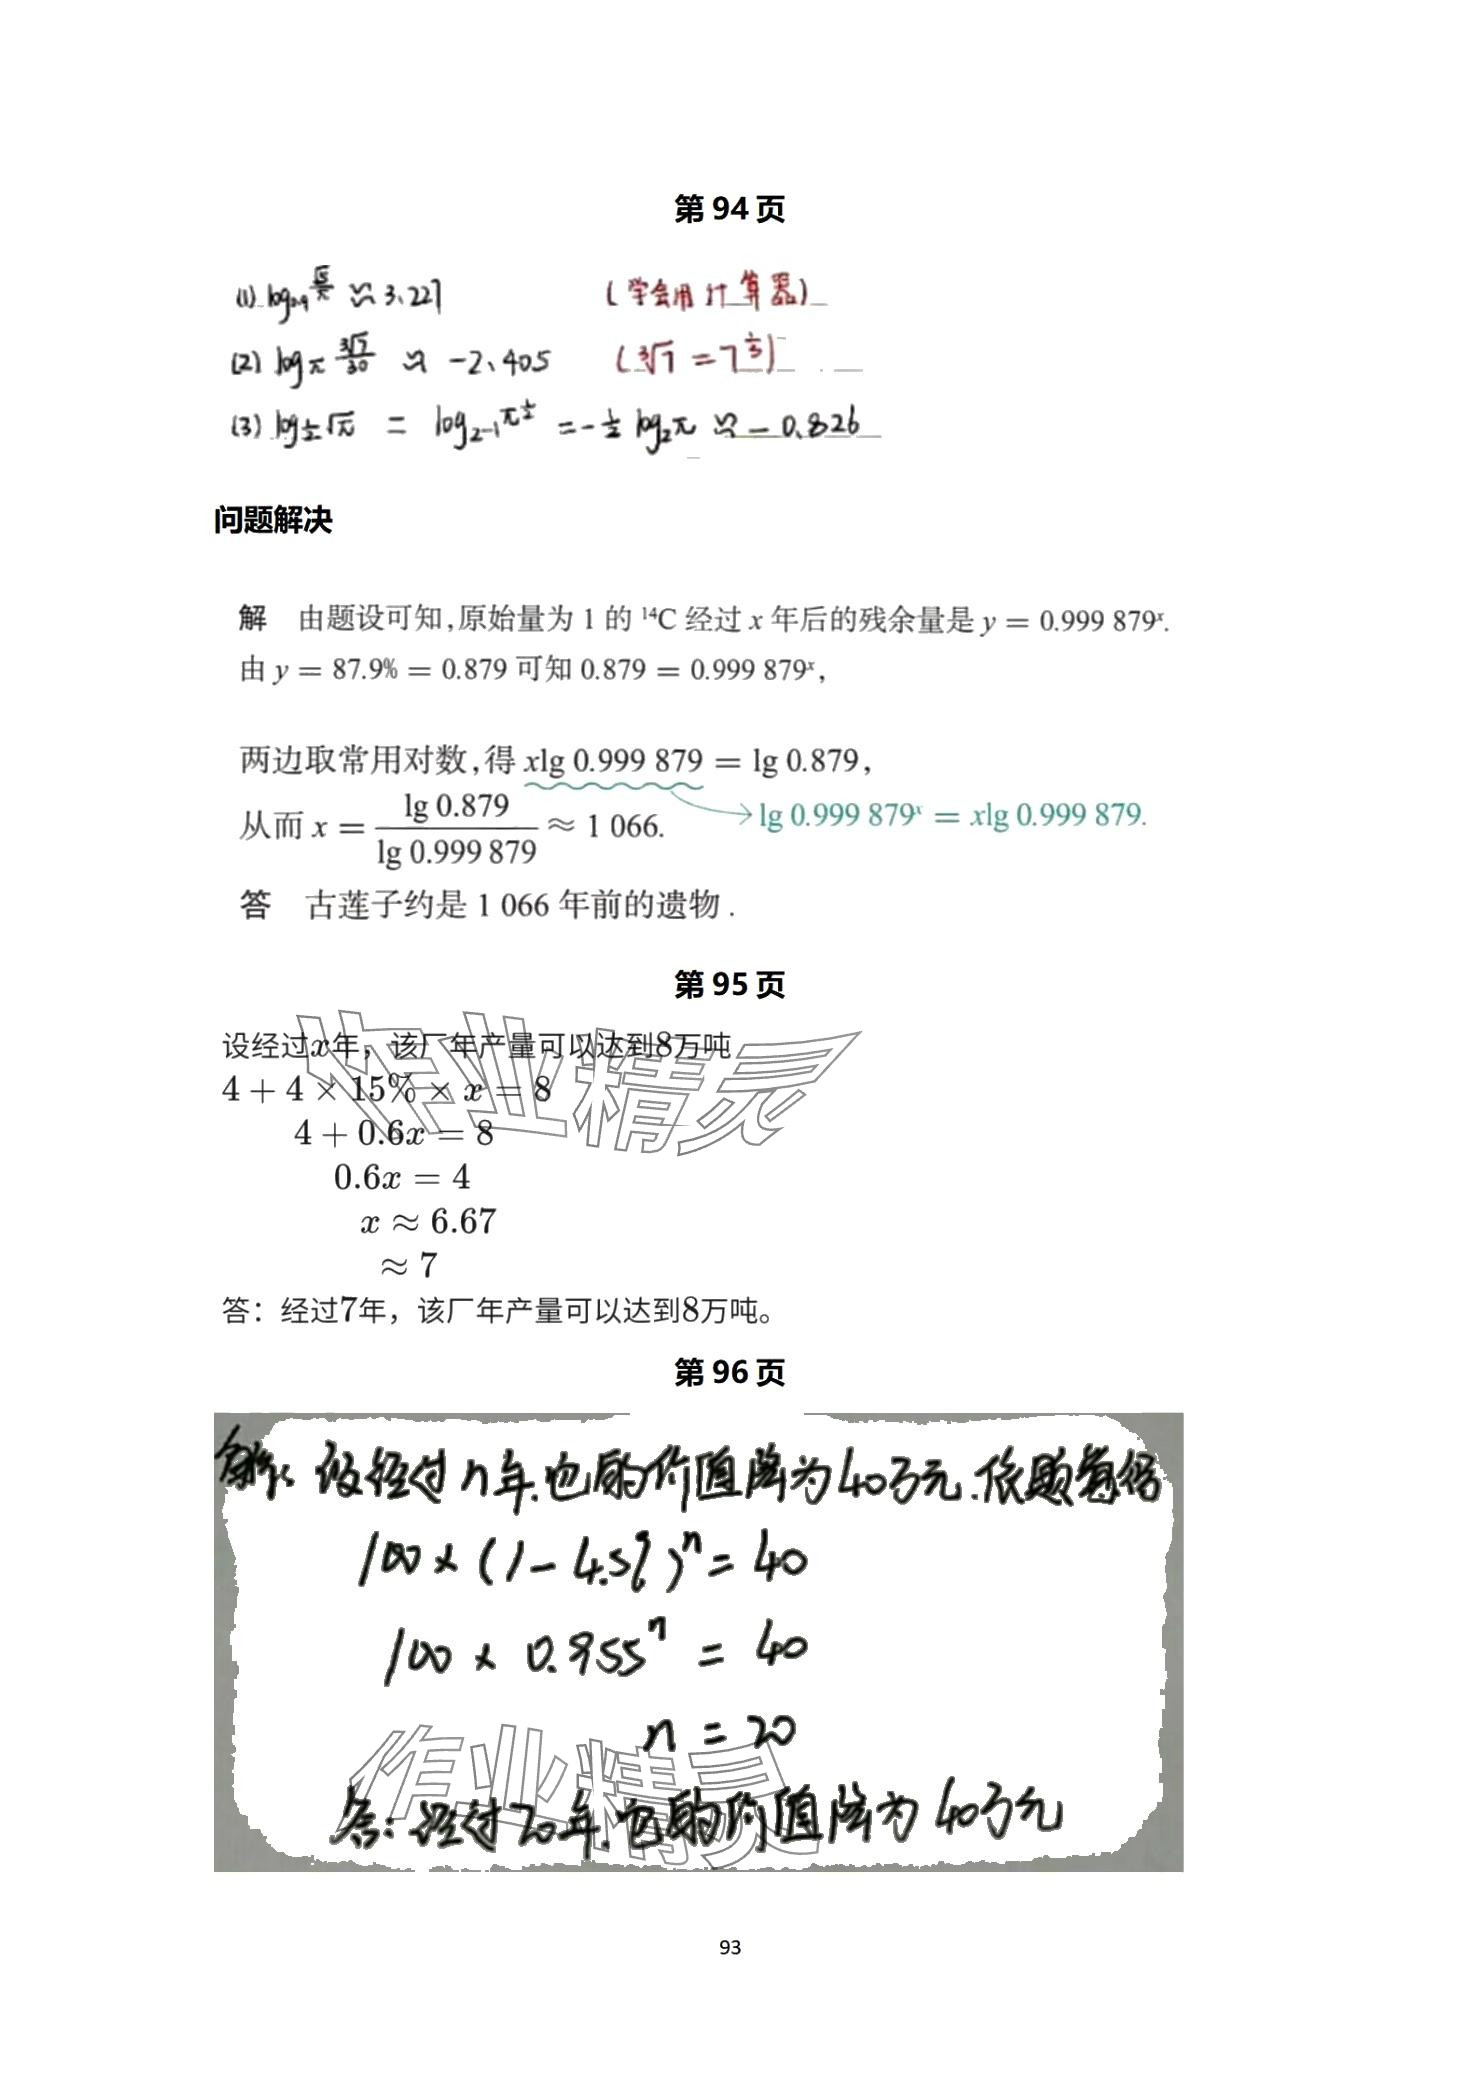 第 94 页
(1) log₀.₉ √5/π ≈ 3.227 (学会用计算器)
(2) log_π ∛7/30 ≈ -2.405 (∛7 = 7^⅓)
(3) log_½ √π = log_2⁻¹ π^½ = -½ log₂π ≈ -0.826
问题解决
解 由题设可知,原始量为 1 的 ¹⁴C 经过 x 年后的残余量是 y = 0.999 879ˣ.
由 y = 87.9% = 0.879 可知 0.879 = 0.999 879ˣ,
两边取常用对数,得 xlg 0.999 879 = lg 0.879,
从而 x = lg 0.879 / lg 0.999 879 ≈ 1 066.
lg 0.999 879ˣ = xlg 0.999 879.
答 古莲子约是 1 066 年前的遗物.
第 95 页
设经过x年，该厂年产量可以达到8万吨
4 + 4 × 15% × x = 8
4 + 0.6x = 8
0.6x = 4
x ≈ 6.67
≈ 7
答：经过7年，该厂年产量可以达到8万吨。
作业精灵
第 96 页
解: 设经过n年.它的价值降为40万元.依题意得
100×(1-4.5%)ⁿ=40
100×0.955ⁿ=40
n=20
答: 经过20年.它的价值降为40万元
作业精灵
93